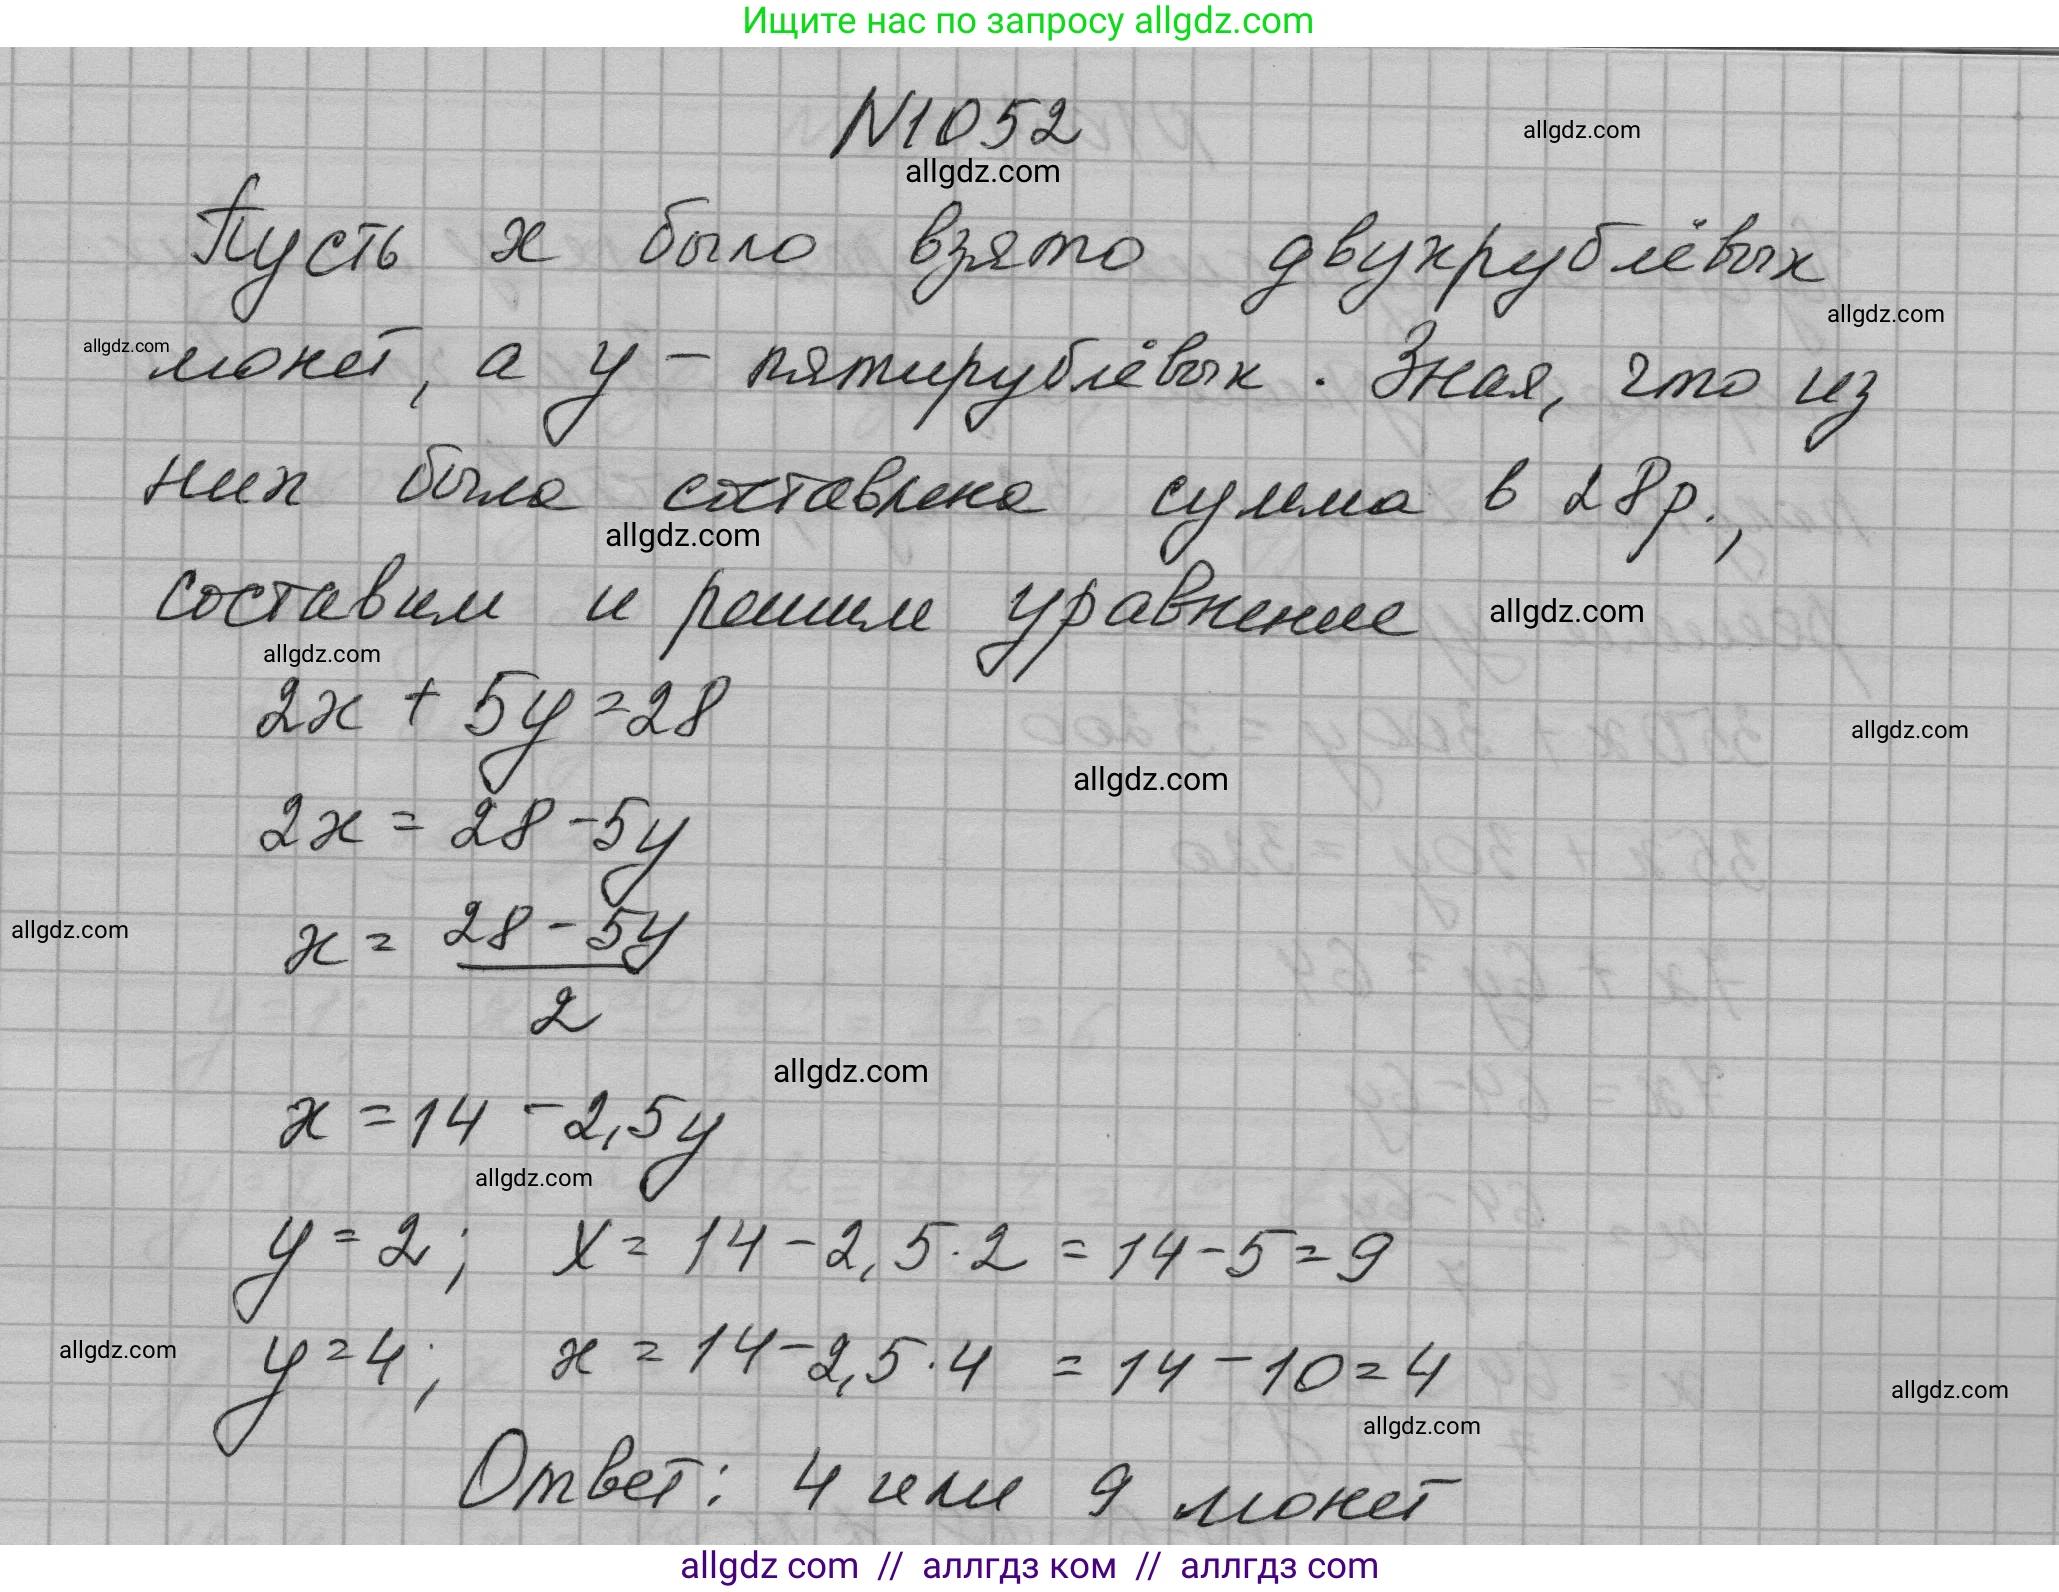 Ищите нас по запросу allgdz.com
N1052
allgdz.com
allgdz.com
Пусть x было взято двухрублёвых
allgdz.com
allgdz.com
монет, а y – пятирублёвых. Зная, что из
них была составлена сумма в 28р.,
allgdz.com
составим и решим уравнение
allgdz.com
allgdz.com
2x + 5y = 28
allgdz.com
allgdz.com
2x = 28 - 5y
allgdz.com
x = \frac{28 - 5y}{2}
allgdz.com
x = 14 - 2,5y
allgdz.com
y = 2; x = 14 - 2,5 · 2 = 14 - 5 = 9
allgdz.com
y = 4; x = 14 - 2,5 · 4 = 14 - 10 = 4
allgdz.com
allgdz.com
Ответ: 4 или 9 монет
allgdz com // аллгдз ком // аллгдз com